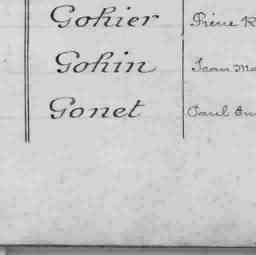 Gohier Pière
Gohin Jean
Gonet Paul